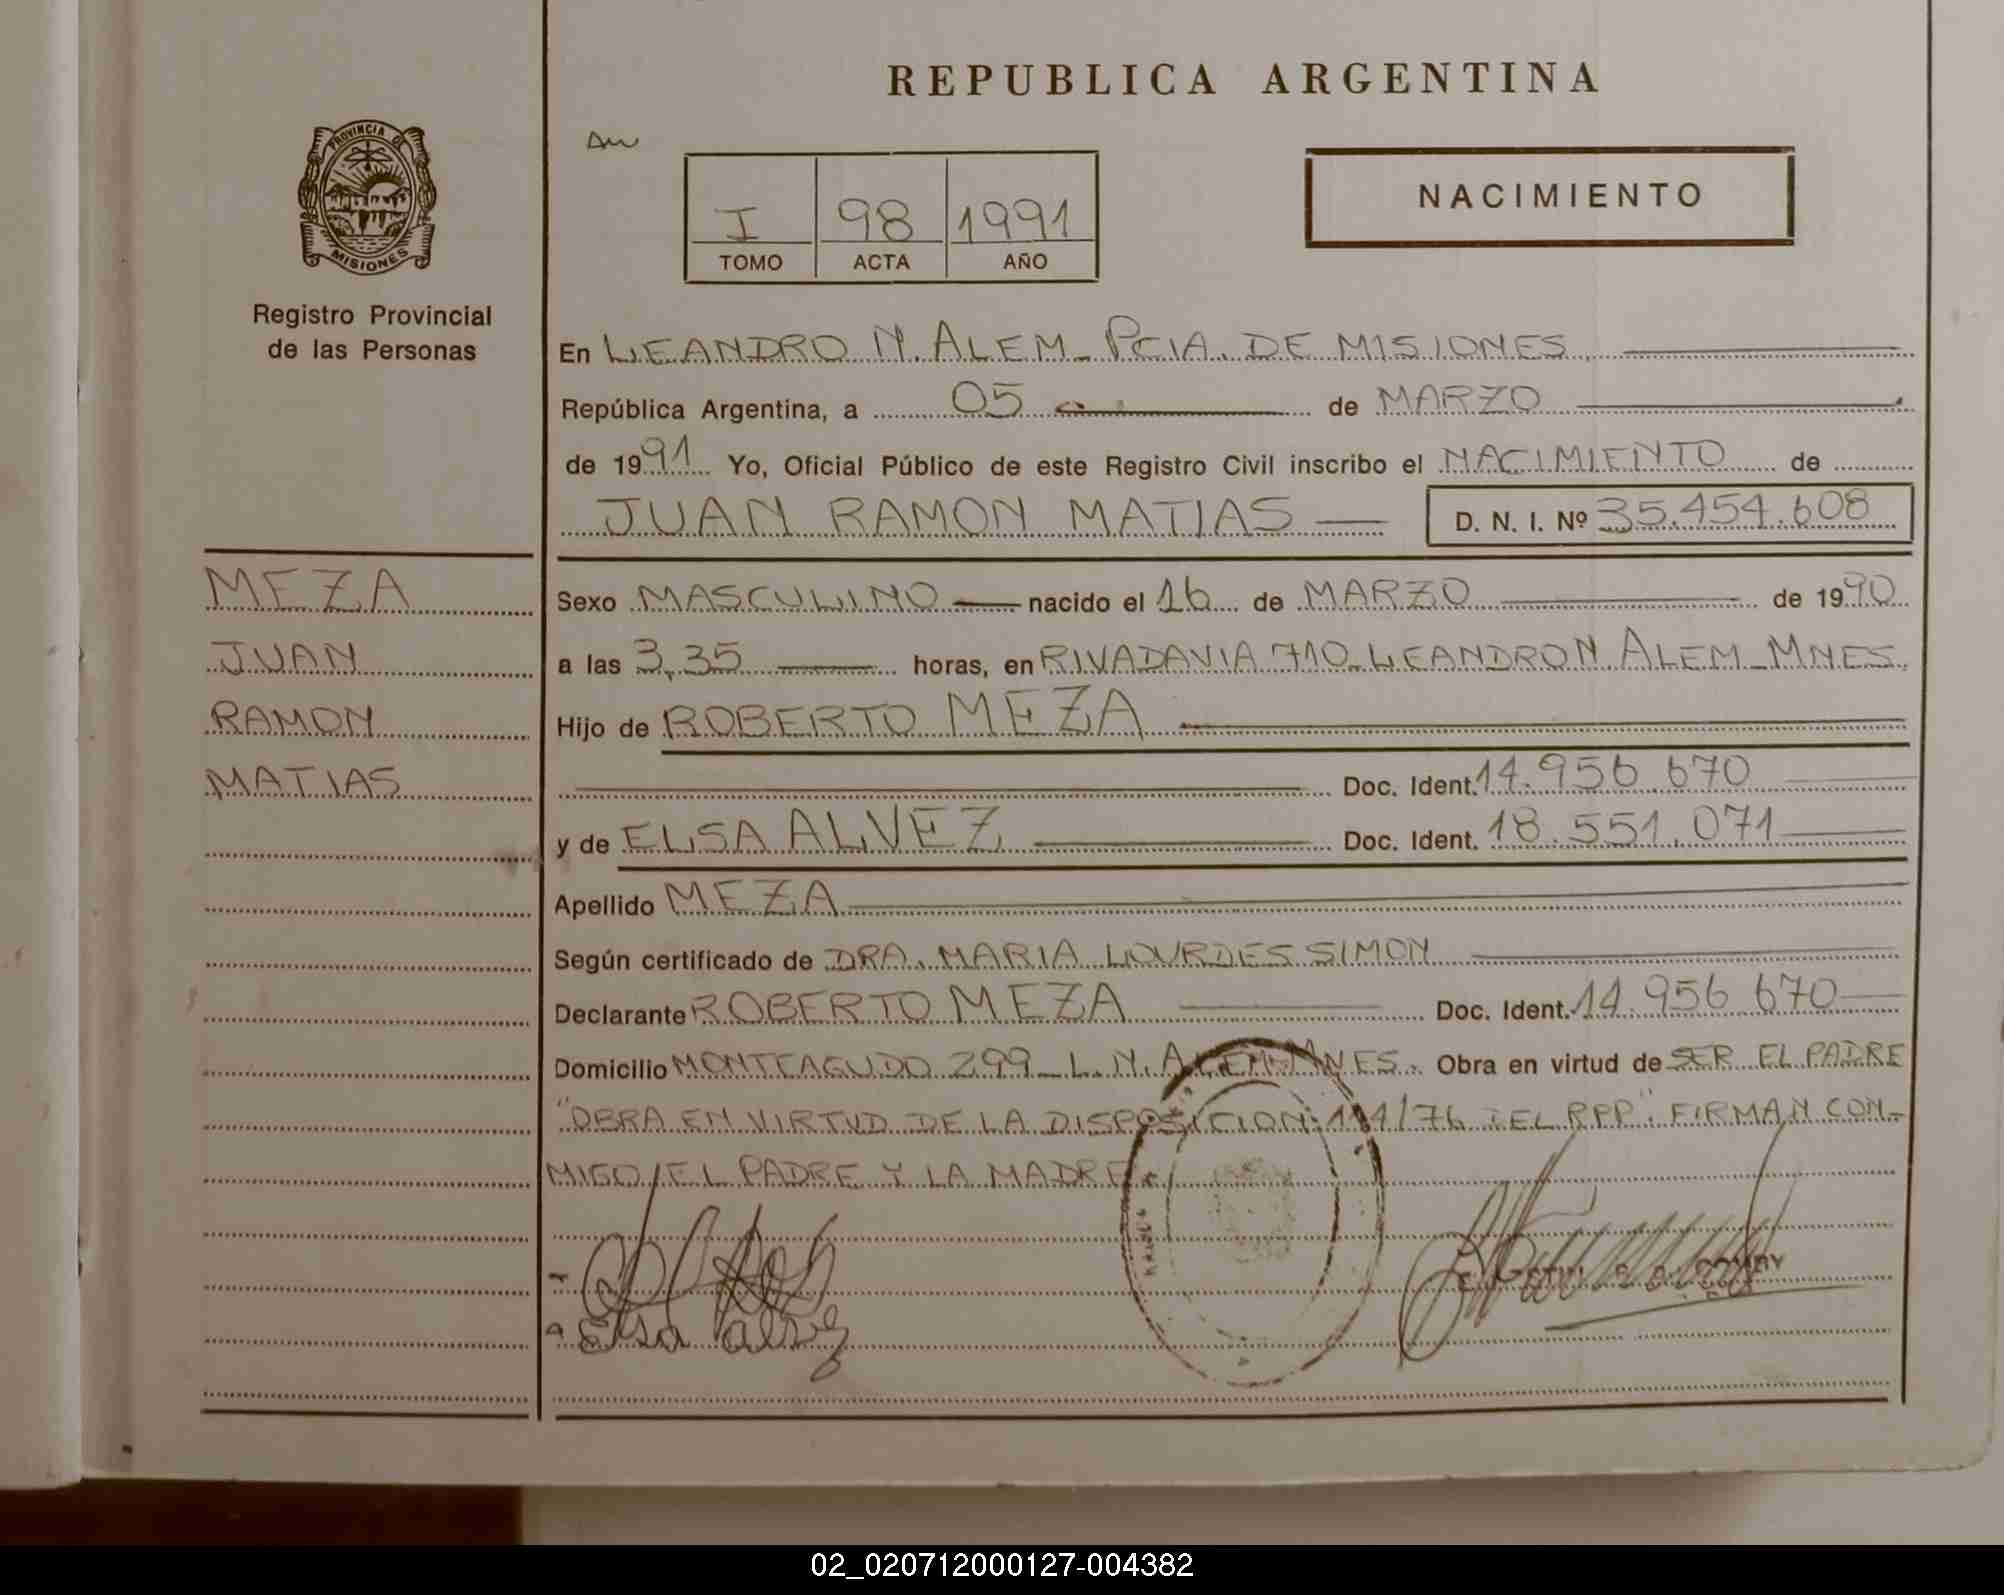 REPUBLICA ARGENTINA
PROVINCIA DE
MISIONES
Registro Provincial
de las Personas
I 98 1991
TOMO ACTA AÑO
NACIMIENTO
En LEANDRO N. ALEM - PCIA. DE MISIONES
República Argentina, a 05 de MARZO
de 1991 Yo, Oficial Público de este Registro Civil inscribo el NACIMIENTO de
JUAN RAMON MATIAS D. N. I. Nº 35.454.608
MEZA
JUAN
RAMON
MATIAS
Sexo MASCULINO nacido el 16 de MARZO de 1990
a las 3,35 horas, en RIVADAVIA 710 - LEANDRO N. ALEM - MNES.
Hijo de ROBERTO MEZA
Doc. Ident. 14.956.670
y de ELSA ALVEZ Doc. Ident. 18.551.071
Apellido MEZA
Según certificado de DRA. MARIA LOURDES SIMON
Declarante ROBERTO MEZA Doc. Ident. 14.956.670
Domicilio MONTEAGUDO 299 - L. N. ALEM - MNES. Obra en virtud de SER EL PADRE
"OBRA EN VIRTUD DE LA DISPOSICION: 114/76 DEL RPP". FIRMAN CON-
MIGO, EL PADRE Y LA MADRE.
Elsa Alvez
02_020712000127-004382